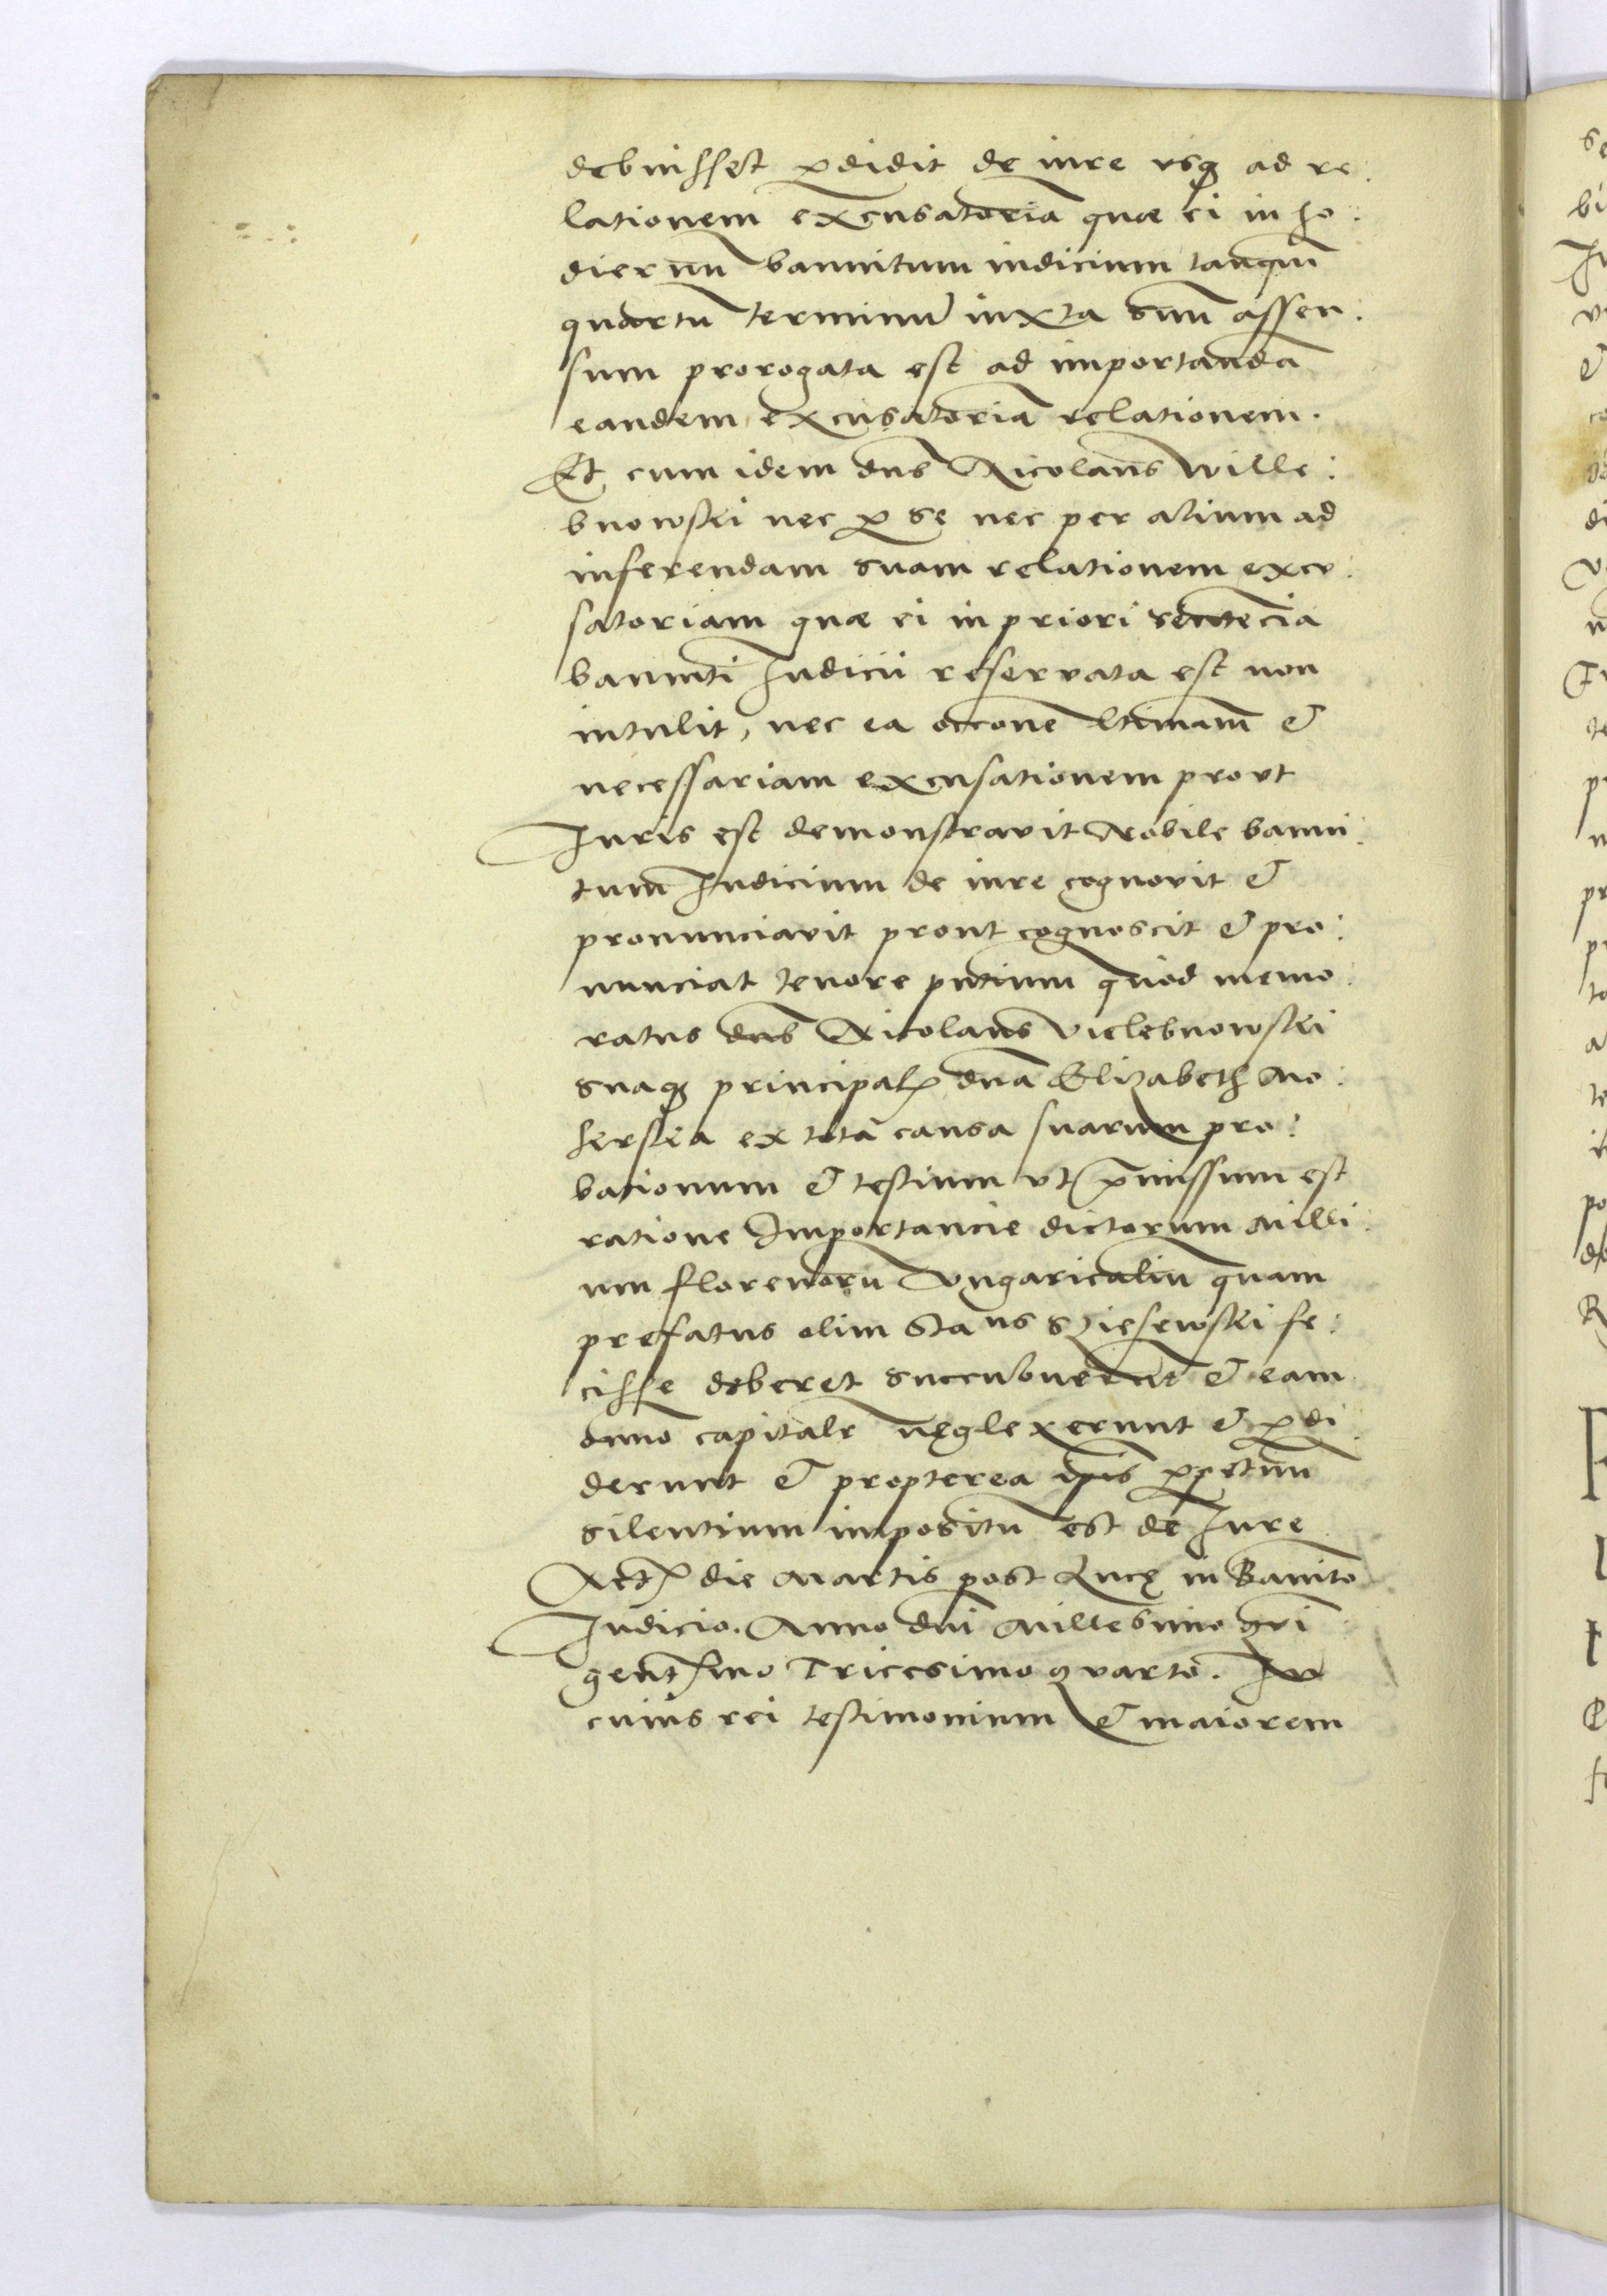 debuisset ꝑdidit de iure vsqꝫ ad re:
lationem excusatoriā quæ ei in ho:
diernū bannitum iudicium tanqm̄
quartū terminū iuxta suū assen:
sum prorogata est ad importandā
eandem excusatoriā relationem.
Et cum idem dns Nicolaus Wille:
bnowski nec ꝑ se nec per alium ad
inferendam suam relationem excu:
satoriam quæ ei in priori sentēcia
banniti Iudicii reseruata est non
intulit, nec ea occōne ltimam &
necessariam excusationem prout
Iuris est demonstrauit Nobile banni:
tum Iudicium de iure cognouit &
pronunciauit prout cognoscit & pro:
nunciat tenore pntium quod memo:
ratus dns Nicolaus Vielebnowski
suaqꝫ principal dna Elizabeth Mo:
herska ex tota causa suarum pro:
bationum & testium vt p̄missum est
ratione Importancie dictorum Milli:
um florenorū Vngaricaliū quam
prefatus olim Staus Sziesewski fe:
cisse deberet succubuerūt & eam
omō capitalr neglexerunt & ꝑdi:
derunt & propterea ipis ꝑpetuū
silentium impositū est de Iure
Act die Martis post Lucę in Bannito
Iudicio. Anno dni Millesimo qui
gentmo Tricesimo quarto. In
cuius rei testimonium & maiorem